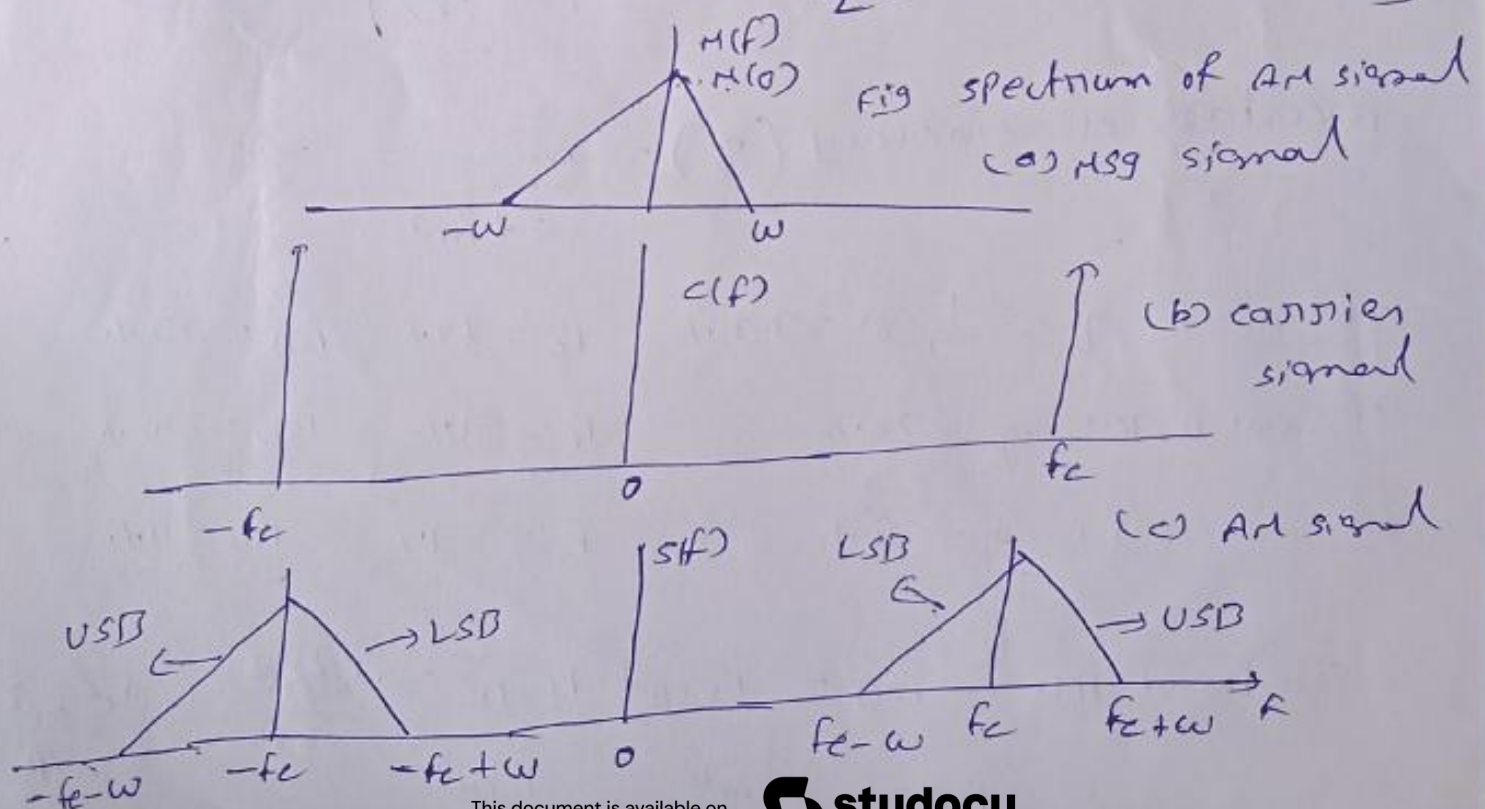 M(f)
M(0)
Fig spectrum of AM signal
(a) Msg signal
-w
w
C(f)
(b) carrier
signal
-fc
0
fc
(c) AM signal
S(f)
LSB
USB
USB
LSB
-fc-w
-fc
-fc+w
0
fc-w
fc
fc+w
f
This document is available on
studocu